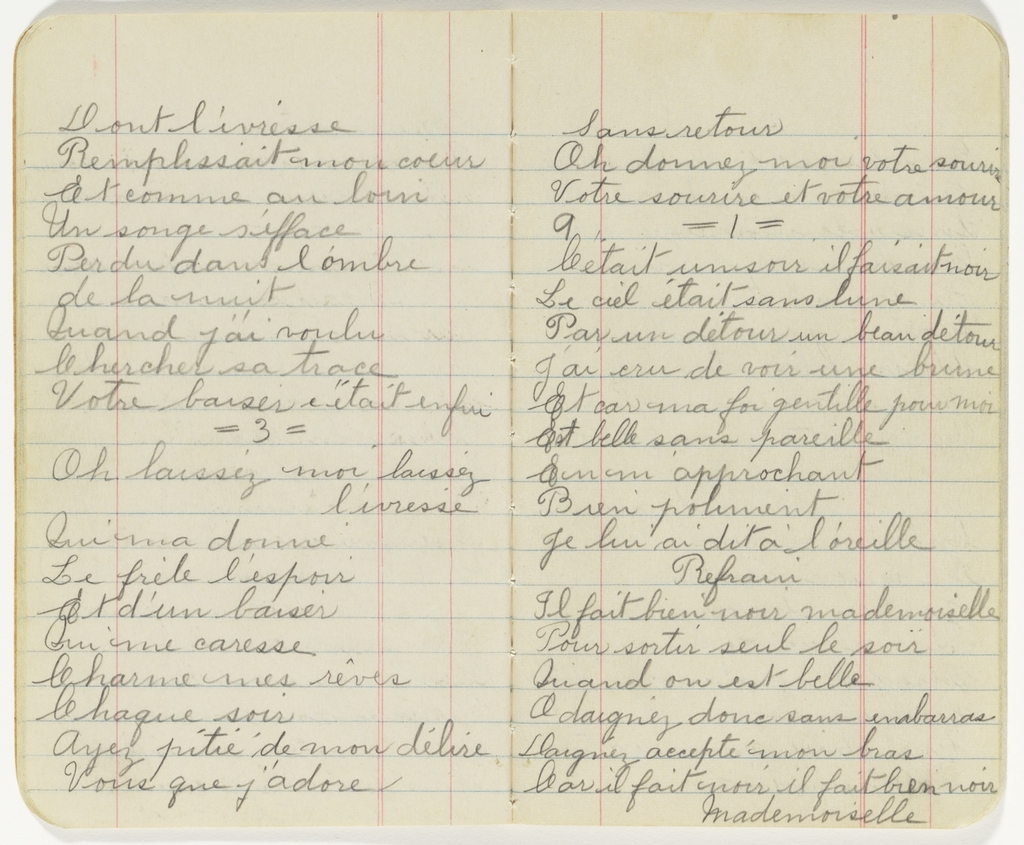 Dont l'ivrésse
Remplissait mon coeur
Et comme au loin
Un songe s'éfface
Perdu dans l'ombre
de la nuit
Quand j'ai voulu
Chercher sa trace
Votre baiser c'était enfui
= 3 =
Oh laisséz moi laisséz
l'ivresse
Qui ma donné
Le frèle l'espoir
Et d'un baiser
Qui me caresse
Charme mes rêves
Chaque soir
Ayez pitié de mon délire
Vous que j'adore
Sans retour
Oh donnez moi votre sourire
Votre sourire et votre amour
9 = 1 =
C'était un soir il faisait noir
Le ciel était sans lune
Par un détour un beau détour
J'ai cru de voir une brune
Et car ma foi gentille pour moi
Est belle sans pareille
En m'approchant
Bien poliment
Je lui ai dit à l'oreille
Refrain
Il fait bien noir mademoiselle
Pour sortir seul le soir
Quand on est belle
O daignez donc sans embarras
Daignez accepté mon bras
Car il fait noir il fait bien noir
Mademoiselle